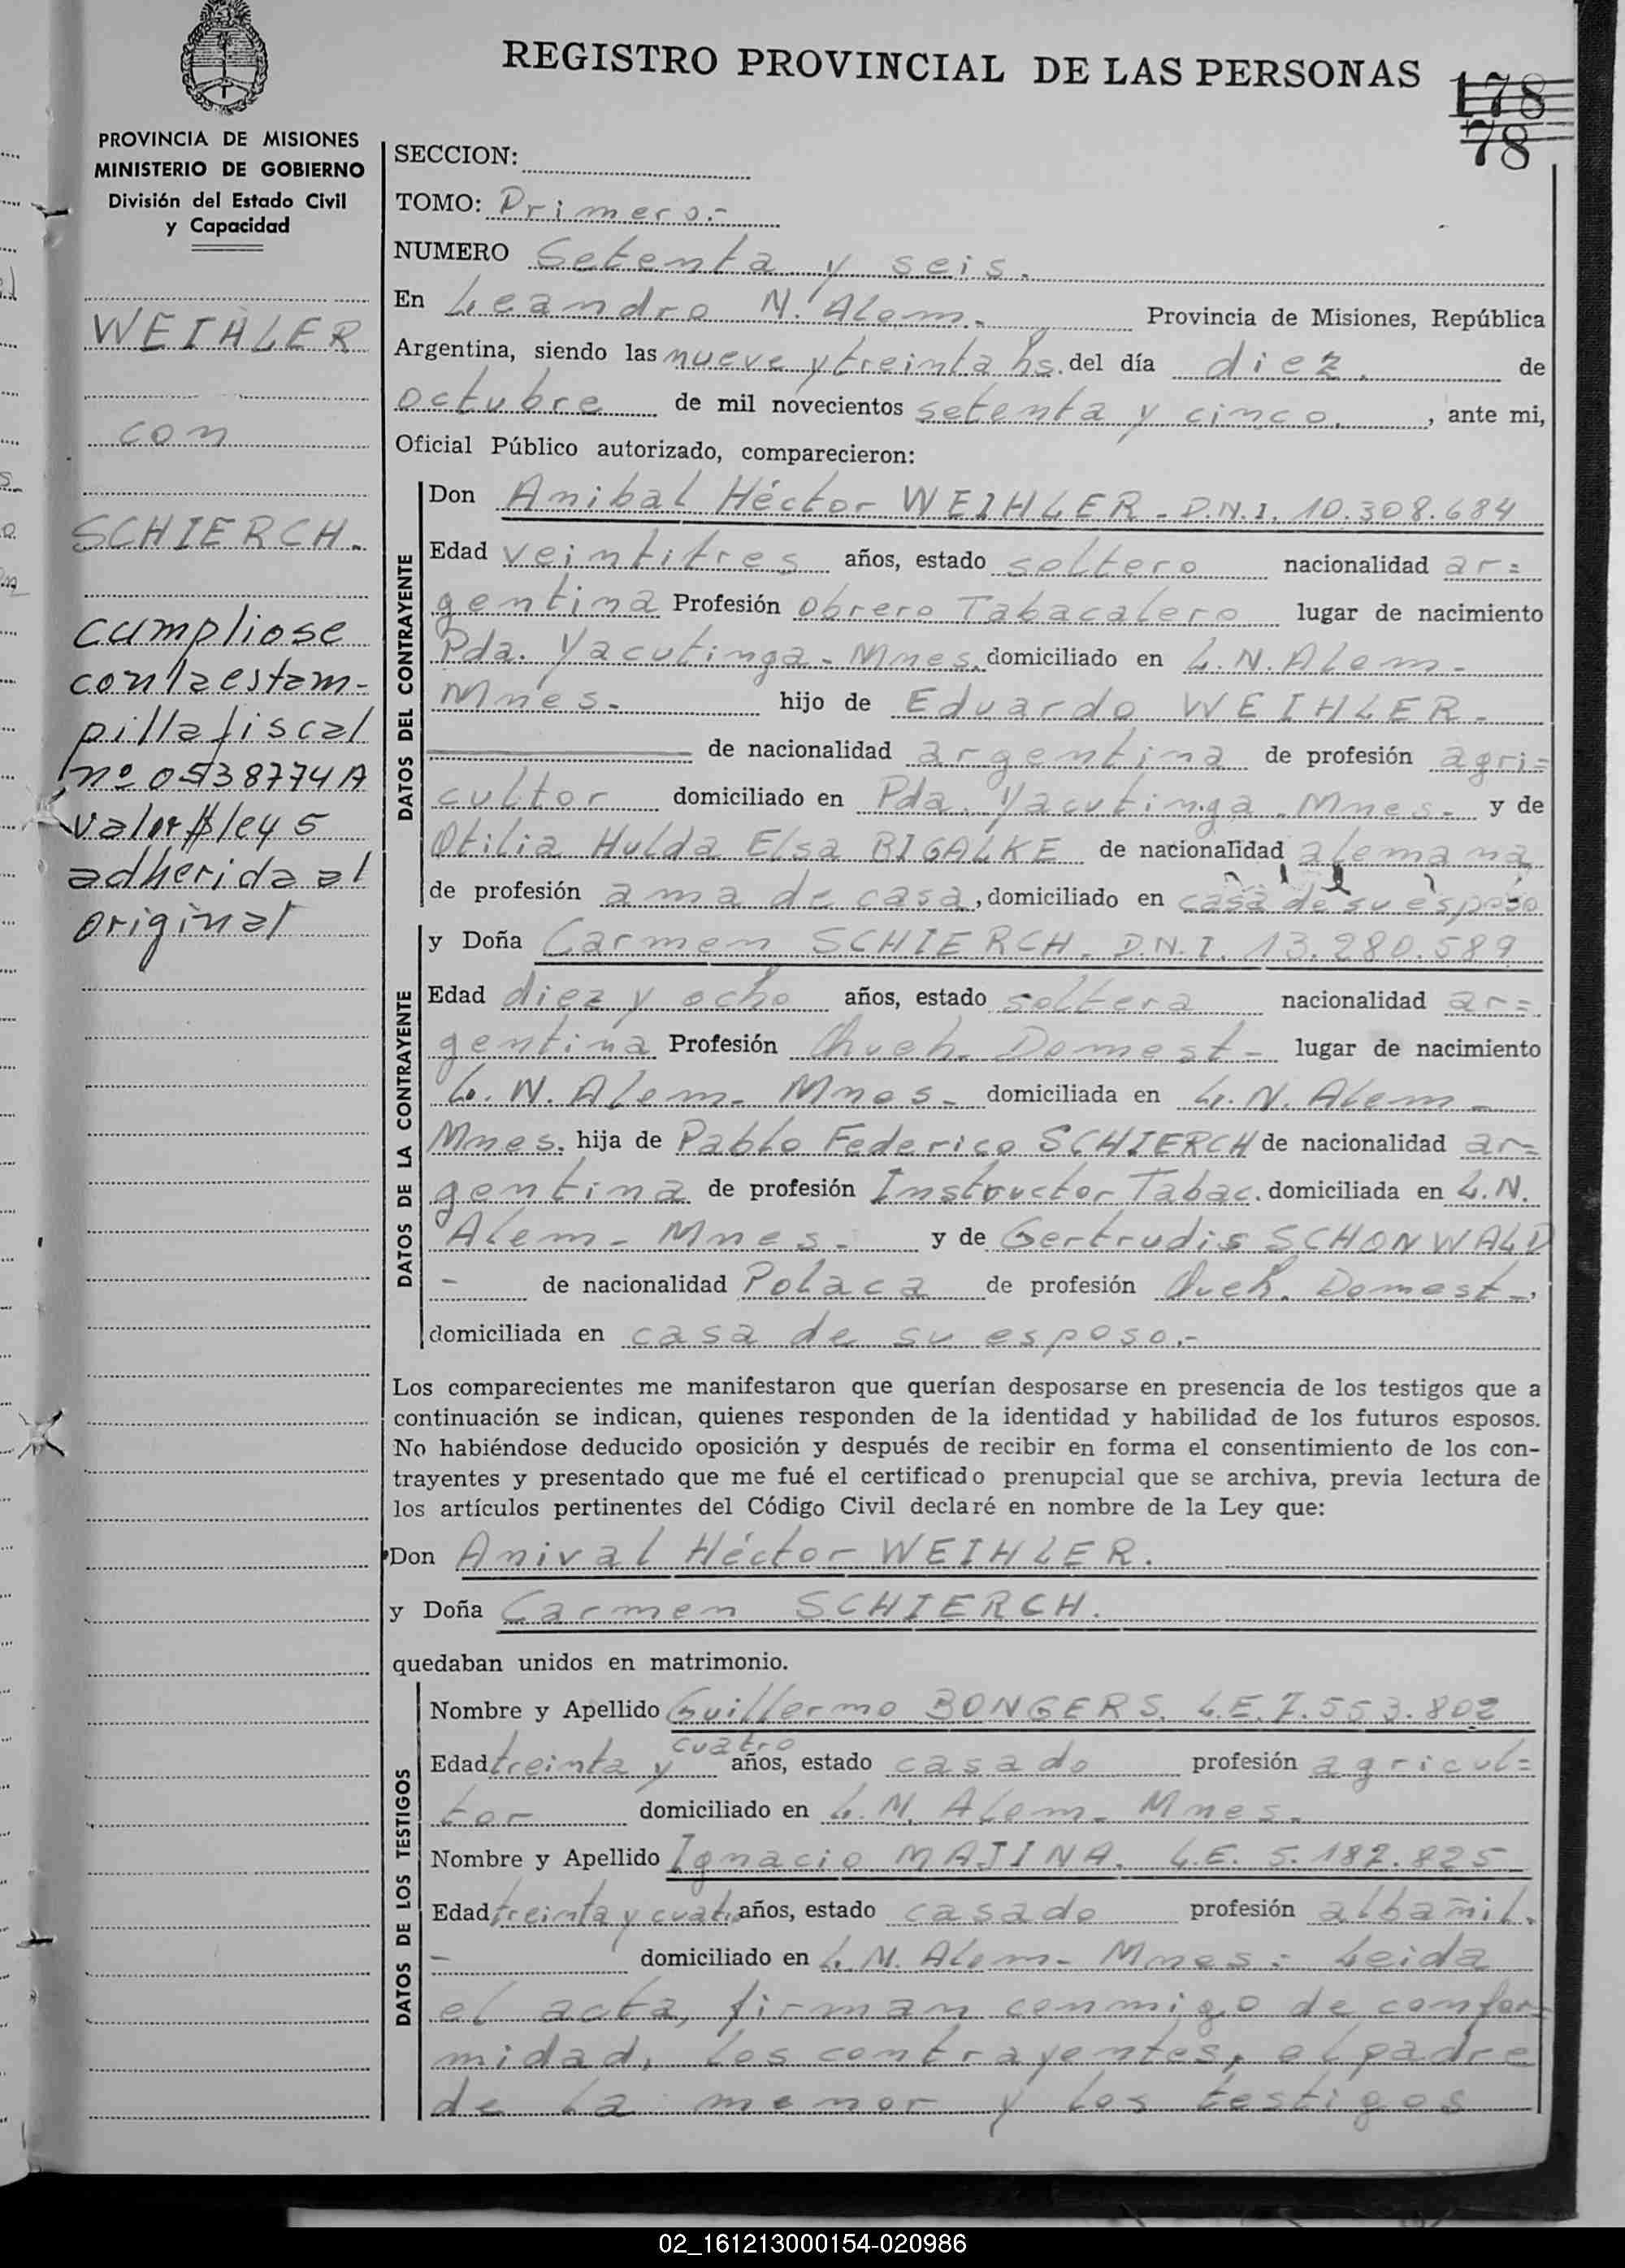 REGISTRO PROVINCIAL DE LAS PERSONAS
178
78
PROVINCIA DE MISIONES
MINISTERIO DE GOBIERNO
División del Estado Civil
y Capacidad
WEIHLER
con
SCHIERCH.
cumpliose
con la estam-
pilla fiscal
nº 0538774A
valor $ ley 5
adherida al
original
SECCION:
TOMO: Primero.-
NUMERO Setenta y seis.
En Leandro N. Alem.- Provincia de Misiones, República
Argentina, siendo las nueve y treinta hs. del día diez. de
octubre de mil novecientos setenta y cinco. , ante mi,
Oficial Público autorizado, comparecieron:
DATOS DEL CONTRAYENTE
Don Anibal Héctor WEIHLER - D.N.I. 10.308.684
Edad veintitres años, estado soltero nacionalidad ar=
gentina Profesión Obrero Tabacalero lugar de nacimiento
Pda. Yacutinga - Mnes. domiciliado en L.N. Alem -
Mnes.- hijo de Eduardo WEIHLER -
de nacionalidad argentina de profesión agri=
cultor domiciliado en Pda. Yacutinga - Mnes.- y de
Otilia Hulda Elsa BIGALKE de nacionalidad alemana
de profesión ama de casa, domiciliado en casa de su esposo
DATOS DE LA CONTRAYENTE
y Doña Carmen SCHIERCH - D.N.I. 13.280.589
Edad diez y ocho años, estado soltera nacionalidad ar=
gentina Profesión Queh. Domest- lugar de nacimiento
L. N. Alem - Mnes - domiciliada en L. N. Alem -
Mnes. hija de Pablo Federico SCHIERCH de nacionalidad ar=
gentina de profesión Instructor Tabac. domiciliada en L.N.
Alem - Mnes.- y de Gertrudis SCHONWALD
- de nacionalidad Polaca de profesión Queh. Domest-,
domiciliada en casa de su esposo.-
Los comparecientes me manifestaron que querían desposarse en presencia de los testigos que a
continuación se indican, quienes responden de la identidad y habilidad de los futuros esposos.
No habiéndose deducido oposición y después de recibir en forma el consentimiento de los con-
trayentes y presentado que me fué el certificado prenupcial que se archiva, previa lectura de
los artículos pertinentes del Código Civil declaré en nombre de la Ley que:
Don Anival Héctor WEIHLER.
y Doña Carmen SCHIERCH.
quedaban unidos en matrimonio.
DATOS DE LOS TESTIGOS
Nombre y Apellido Guillermo BONGERS. L.E. 7.553.802
Edad treinta y cuatro años, estado casado profesión agricul=
tor domiciliado en L. N. Alem - Mnes.-
Nombre y Apellido Ignacio MAJINA. L.E. 5.187.825
Edad treinta y cuatro años, estado casado profesión albañil.
- domiciliado en L. N. Alem - Mnes.= Leida
el acta, firman conmigo de confor=
midad, los contrayentes, el padre
de la menor y los testigos
02_161213000154-020986